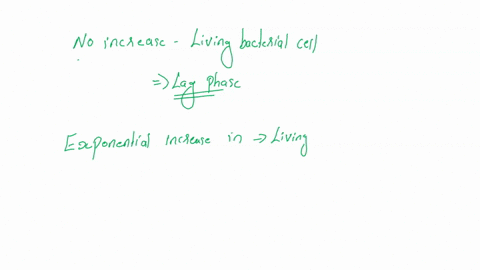 No increase - Living bacterial cell
=> Lag phase
Exponential increase in -> Living